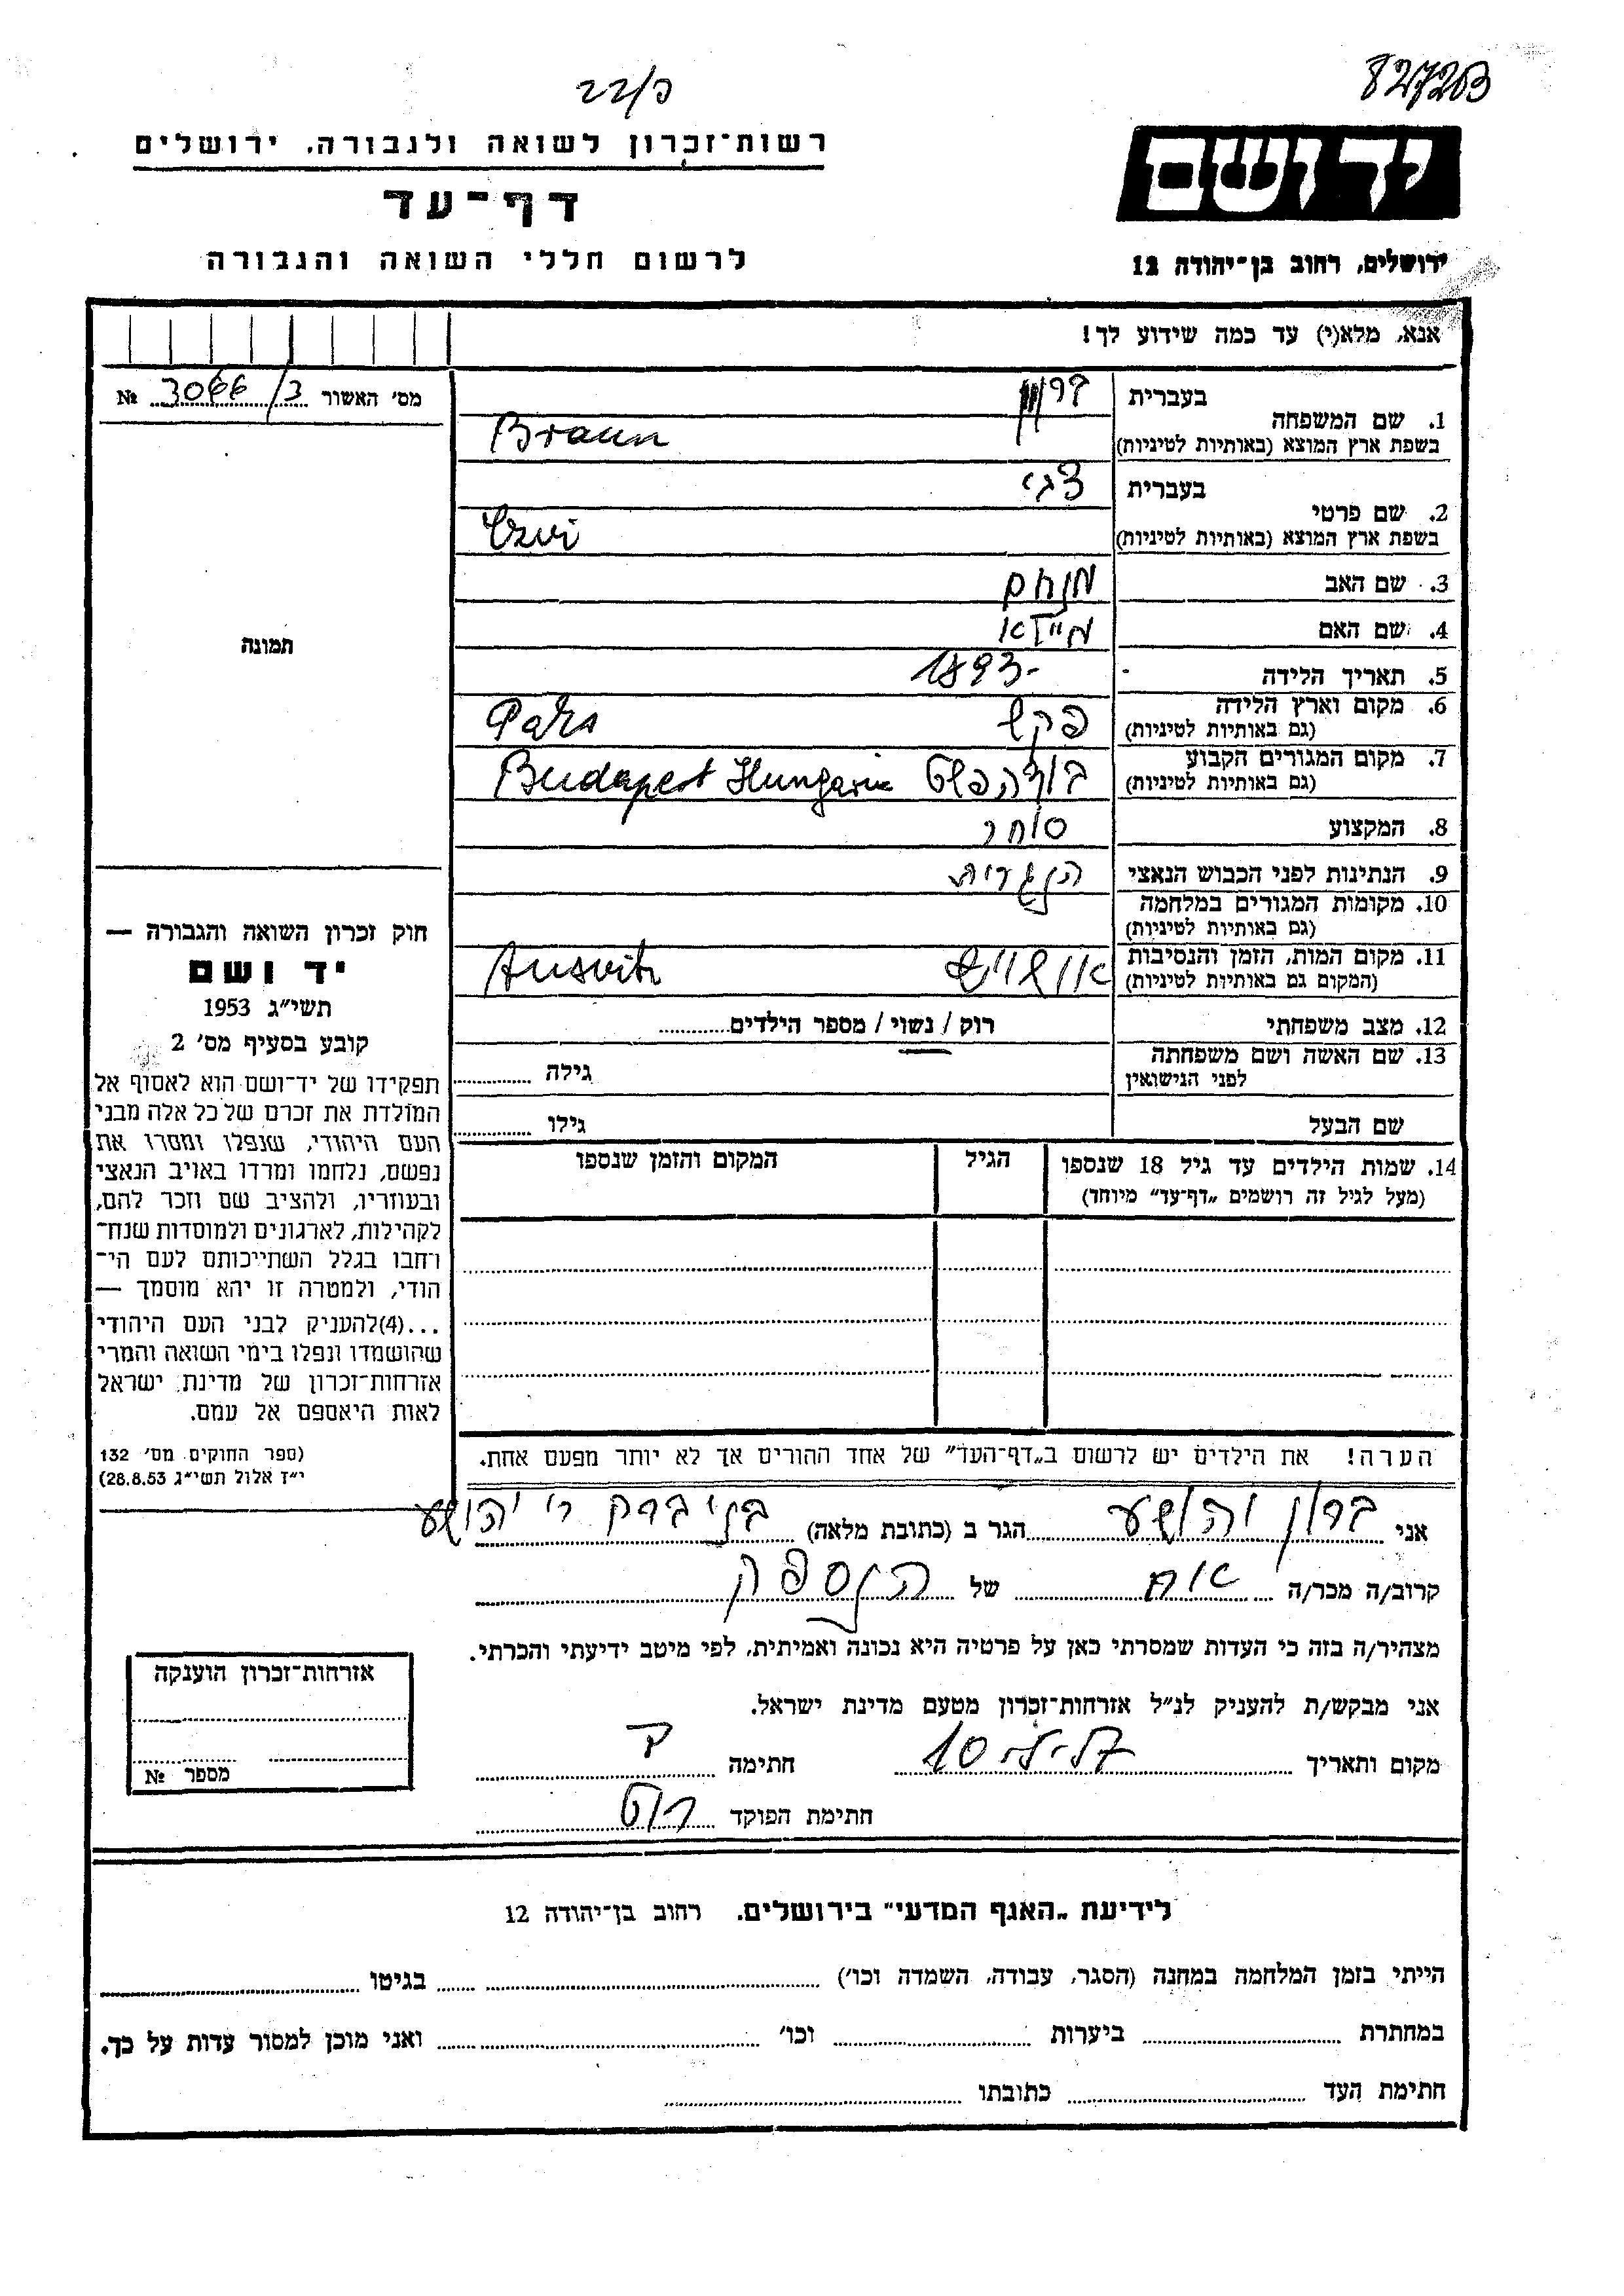 22/כ
827203
רשות־זכרון לשואה ולגבורה. ירושלים
דף־עד
לרשום חללי השואה והגבורה
יד ושם
ירושלים, רחוב בן־יהודה 12
אנא, מלא(י) עד כמה שידוע לך!
מס׳ האשור 3066/3 №
1. שם המשפחה
בעברית ברוין
בשפת ארץ המוצא (באותיות לטיניות) Braun
2. שם פרטי
בעברית צבי
בשפת ארץ המוצא (באותיות לטיניות) Czvi
3. שם האב מנחם
4. שם האם
5. תאריך הלידה 1893-
6. מקום וארץ הלידה פקש Paks
(גם באותיות לטיניות)
7. מקום המגורים הקבוע בודהפשט Budapest Hungaria
(גם באותיות לטיניות)
8. המקצוע סוחר
9. הנתינות לפני הכבוש הנאצי הנגרית
10. מקומות המגורים במלחמה
(גם באותיות לטיניות)
11. מקום המות, הזמן והנסיבות אושוויץ Ausvitz
(המקום גם באותיות לטיניות)
12. מצב משפחתי רוק / נשוי / מספר הילדים
13. שם האשה ושם משפחתה
לפני הנישואין גילה
שם הבעל גילו
14. שמות הילדים עד גיל 18 שנספו הגיל המקום והזמן שנספו
(מעל לגיל זה רושמים „דף־עד״ מיוחד)
תמונה
חוק זכרון השואה והגבורה —
יד ושם
תשי״ג 1953
קובע בסעיף מס׳ 2
תפקידו של יד־ושם הוא לאסוף אל
המולדת את זכרם של כל אלה מבני
העם היהודי, שנפלו ומסרו את
נפשם, נלחמו ומרדו באויב הנאצי
ובעוזריו, ולהציב שם וזכר להם,
לקהילות, לארגונים ולמוסדות שנח־
רחבו בגלל השתייכותם לעם הי־
הודי, ולמטרה זו יהא מוסמך —
...(4)להעניק לבני העם היהודי
שהושמדו ונפלו בימי השואה והמרי
אזרחות־זכרון של מדינת ישראל
לאות היאספם אל עמם.
(ספר החוקים מס׳ 132
י״ז אלול תשי״ג 28.8.53)
הערה! את הילדים יש לרשום ב„דף־העד״ של אחד ההורים אך לא יותר מפעם אחת.
אני ברון יהושע הגר ב (כתובת מלאה) בני ברק ר׳ יהושע
קרוב/ה מכר/ה אח של הנספה
מצהיר/ה בזה כי העדות שמסרתי כאן על פרטיה היא נכונה ואמיתית, לפי מיטב ידיעתי והכרתי.
אני מבקש/ת להעניק לנ״ל אזרחות־זכרון מטעם מדינת ישראל.
מקום ותאריך 10 חתימה
חתימת הפוקד
אזרחות־זכרון הוענקה
מספר №
לידיעת „האגף המדעי״ בירושלים. רחוב בן־יהודה 12
הייתי בזמן המלחמה במחנה (הסגר, עבודה, השמדה וכו׳) בגיטו
במחתרת ביערות וכו׳ ואני מוכן למסור עדות על כך.
חתימת העד כתובתו